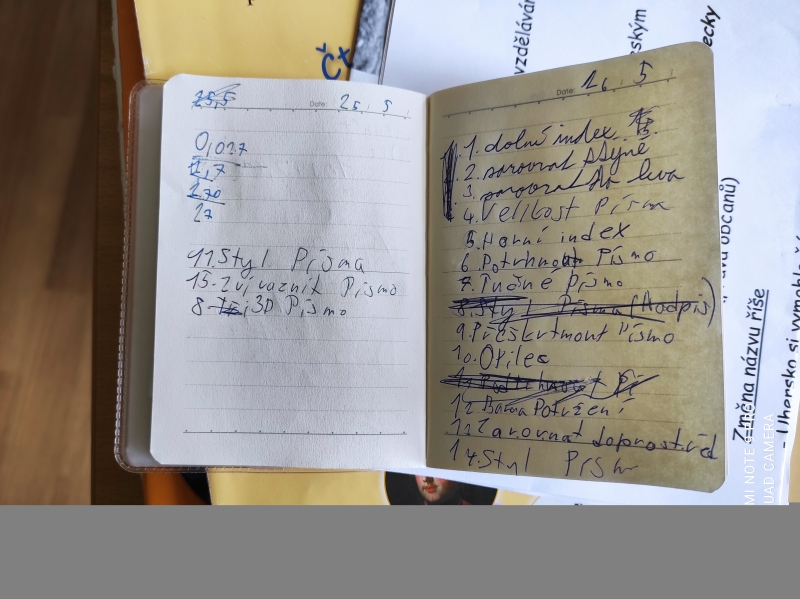 25,5
Date: 25. 5
0,027
1,7
270
27
11. Styl Písma
15. Zvíraznit Písmo
8. 3D Písmo
Date: 26. 5
1. dolní index
2. sarovnat Stejně
3. sarovnat do leva
4. Velikost Písma
5. Horní index
6. Potrhnout Písmo
7. Tučné písmo
8. Styl Písma (Nadpis)
9. Přeškrtnout Písmo
10. Opilec
12 Barva Potržení
13 Zarovnat doprostřed
14. Styl Písm
vzdělávání
ským
ecky
va občanů)
Změna názvu říše
- Uhersko si vymohlo
MI NOTE
QUAD CAMERA